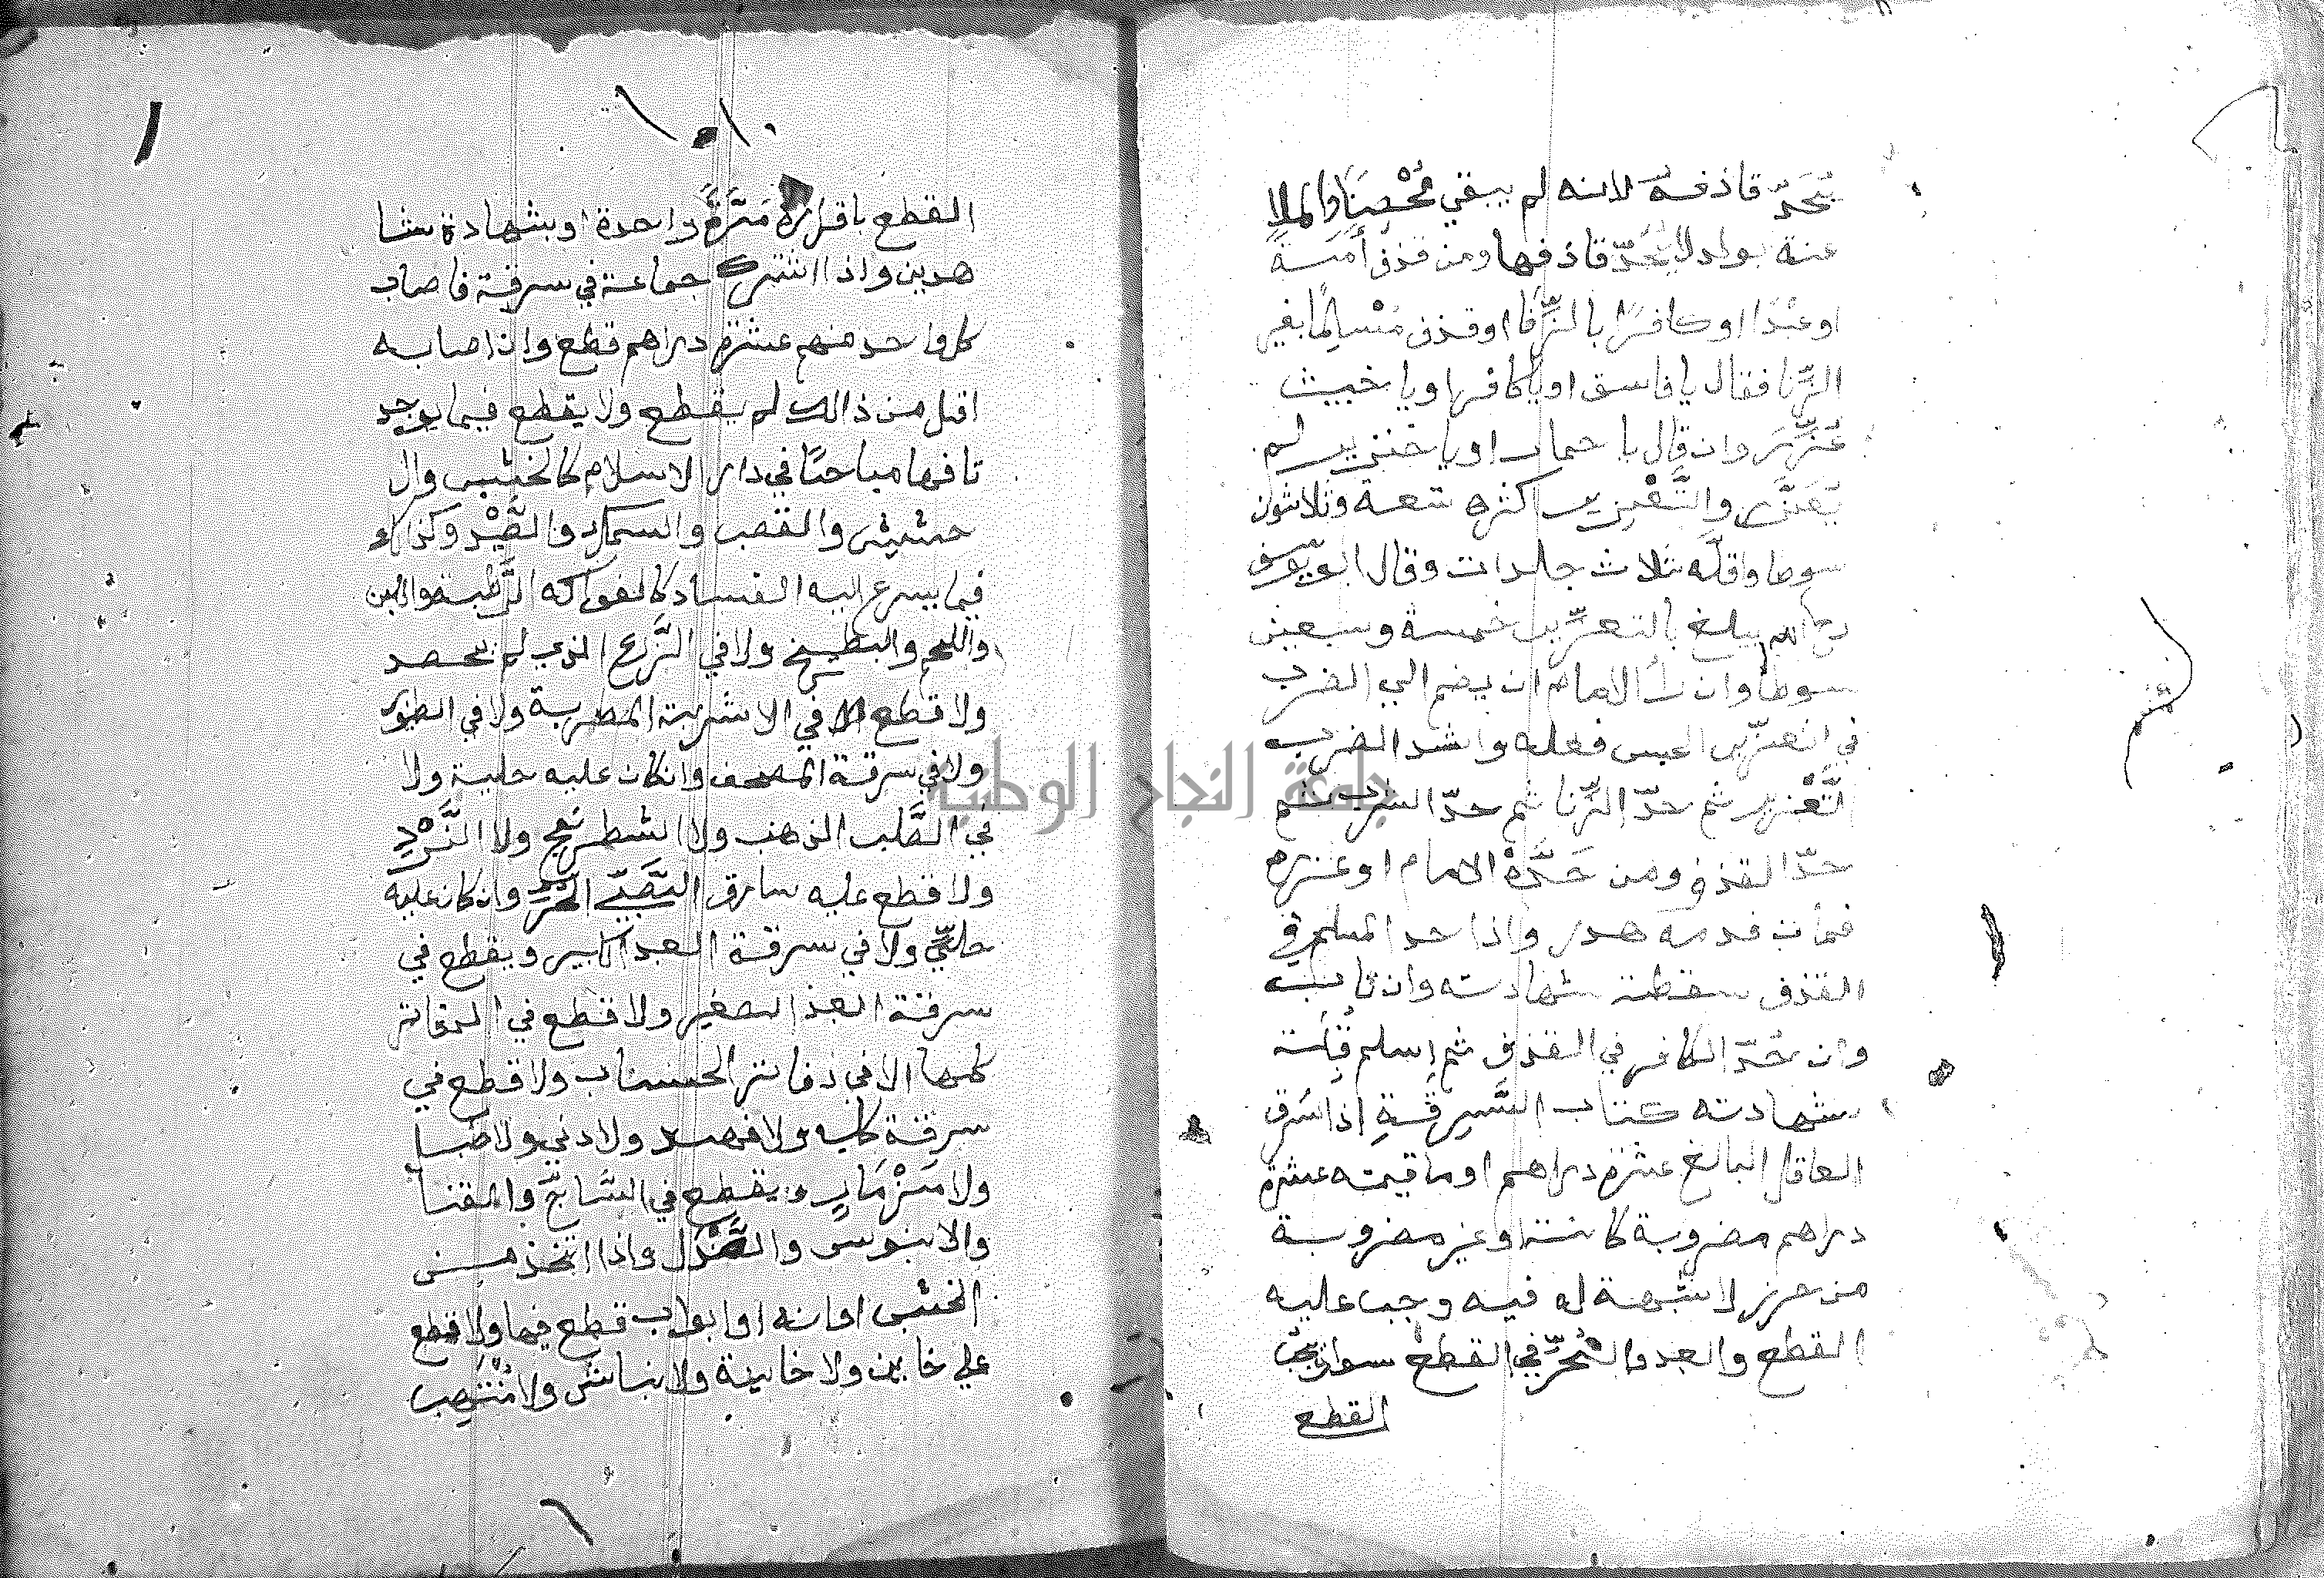 يُحَدّ قاذفه لانه لم يبقي مُحْصِنَا والملا
عنة بولد لا يُحَدّ قاذفها ومن قذف أَمَةً
او عبْدًا او كافرًا بالزِّنا او قذف مُسْلِمًا بغير
الزّنا فقال يا فاسق او يا كافر او يا خبيث
عُزِّرَ وان قال يا حمار او يا خنزير لم
يعَزَّر والتَّعْزير اكثره تسعة وثلاثون
سوطا واقلّه ثلاث جلدات وقال ابو يوسف
رح الله يبلغ بالتعزّير خمسة وسبعين
سوطا وان شأ الامام ان يضم الي الضرب
في التعزّير الحبس فعله واشد الضرب
التَّعْزير ثم حدّ الزّنا ثم حدّ الشرب ثم
حدّ القذف ومن حَدَّهُ الامام او عزره
فمات فدمه هدر واذا حد المسلم في
القذف سقطة شهادته وان تاب
وان حُدّ الكافر في القذف ثم اسلم قُبِلَت
شهادته كتاب السَّرِقَةِ اذا سَرق
العاقل البالغ عشرة دراهم او ما قيمته عشرة
دراهم مضروبة كانت او غير مضروبة
من حرز لا شبهة له فيه وجب عليه
القطع والعبد والْحُرّ في القطع سوا ويجب
القطع
القطع باقراره مَرَّةً واحدة او بشهادة شا
هدين واذا اشترك جماعة في سرقة فاصاب
كل واحد منهم عشرة دراهم قطع وان اصابه
اقل من ذالك لم يقطع ولا يقطع فيما يوجد
تافها مباحًا في دار الاسلام كالخشب وال
حشيش والقصب والسمك والصَّيْد وكذا لا
فيما يسرع اليه الفساد كالفواكه الرَّطبة واللبن
واللحم والبطيخ ولا في الزَّرع الذي لم يحصد
ولا قطع في الاشربة المطربة ولا في الطنبور
ولا في سرقة المصحف وان كان عليه حلية ولا
في الصَّليب الذهب ولا الشطرنج ولا النَّرْدِ
ولا قطع عليه سارق الصَّبِيّ الحُرّ وان كان عليه
حليّ ولا في سرقة العبد الكبير ويقطع في
سرقة العبد الصغير ولا قطع في الدفاتر
كلها الا في دفاتر الحساب ولا قطع في
سرقة كلب ولا فهد ولا دف ولا طبل
ولا مَزْمَارٍ ويقطع في السَّاجّ والقنا
والابنوس والصَّنْدَل واذا اتخذ من
الخشب اوانه او ابواب قطع فيها ولا قطع
علي خاين ولا خاينة ولا نباش ولا مُنْتَهِب